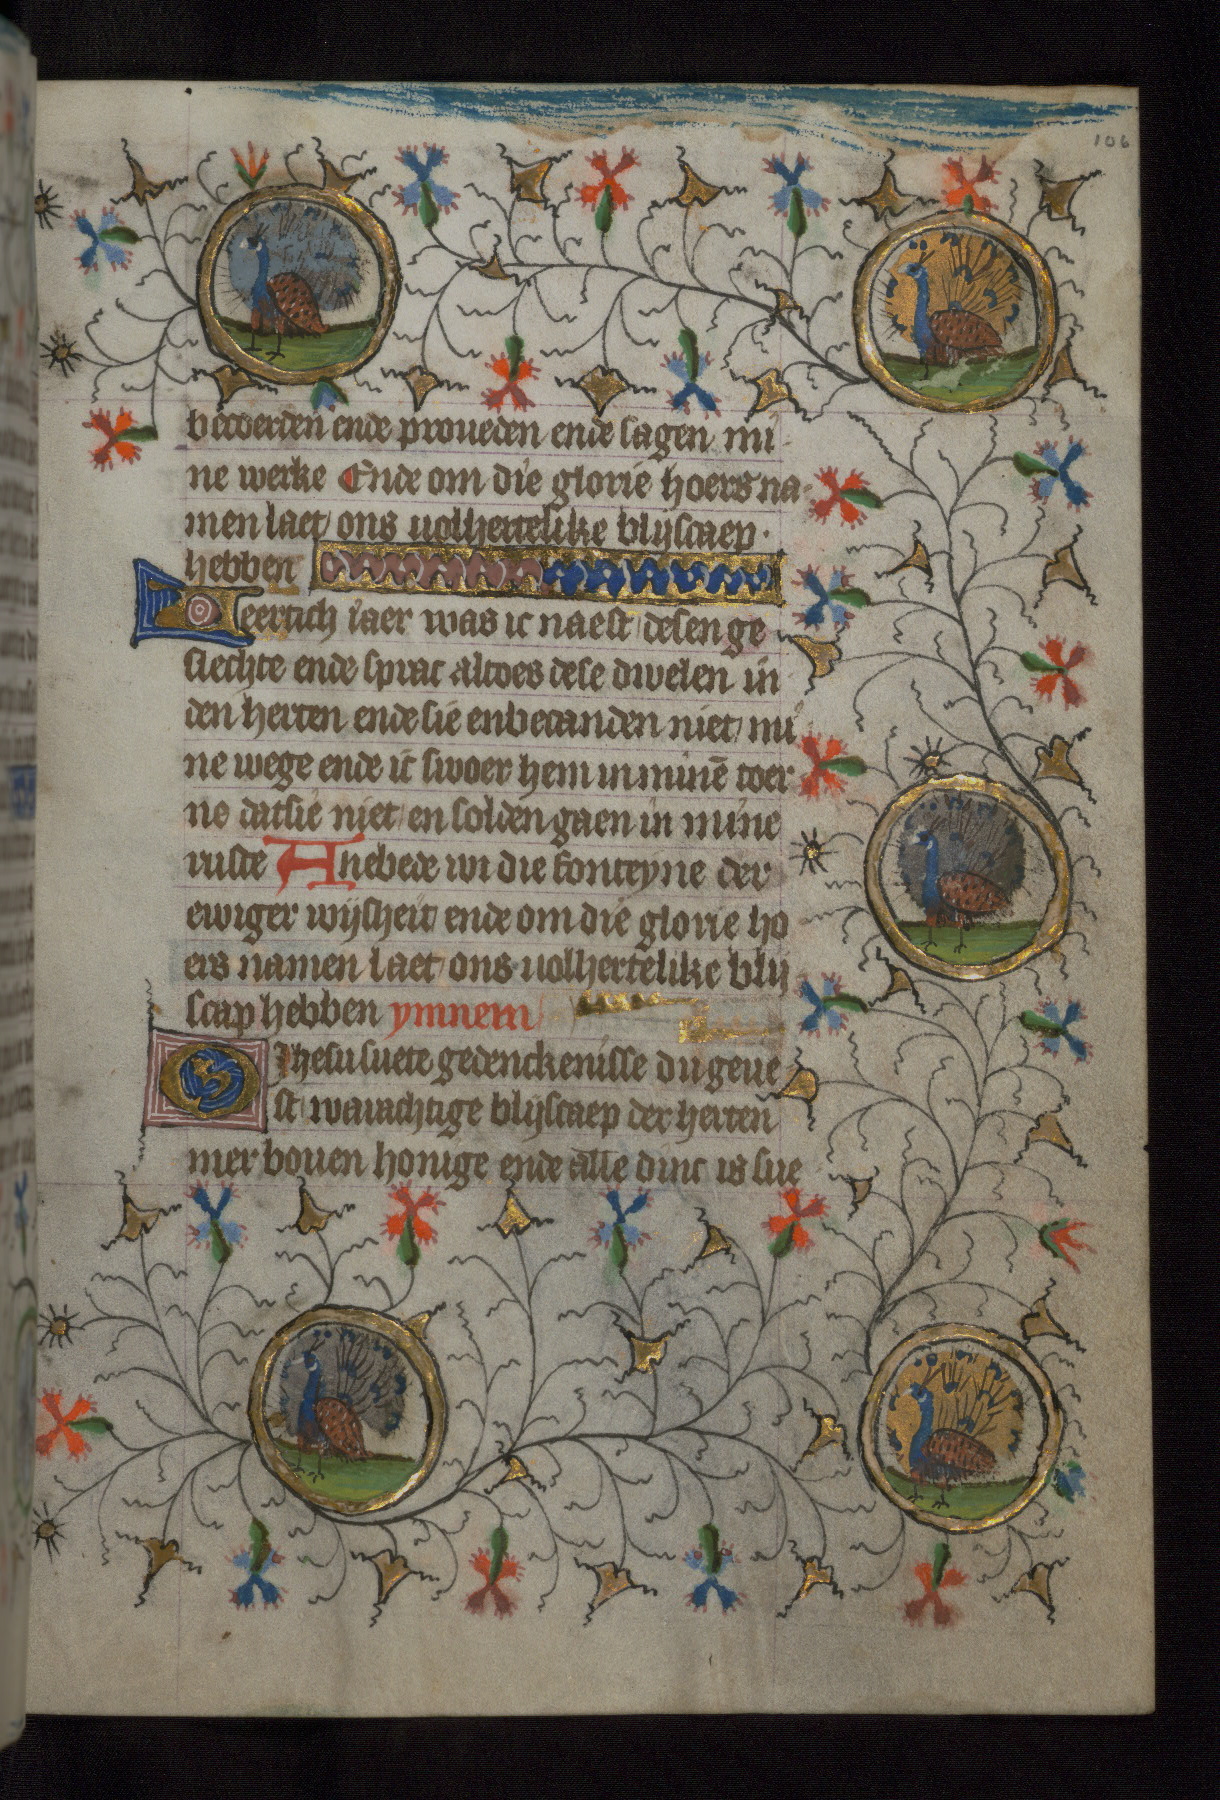 106
becoerden ende proueden ende sagen mi
ne werke Ende om die glorie hoers na
men laet ons uolhertelike blijscaep
hebben
Veertich iaer was ic naest desen ge
slechte ende sprac altoes dese dwelen in
den herten ende sie enbecanden niet mi
ne wege ende ic swoer hem in minē toer
ne dat sie niet en solden gaen in mine
ruste Anebede wi die fonteyne der
ewiger wijsheit ende om die glorie ho
ers namen laet ons uolhertelike blij
scap hebben ymnem
O Ihesu suete gedenckenisse du geue
st warachtige blijscaep der herten
mer bouen honige ende alle dinc is sue